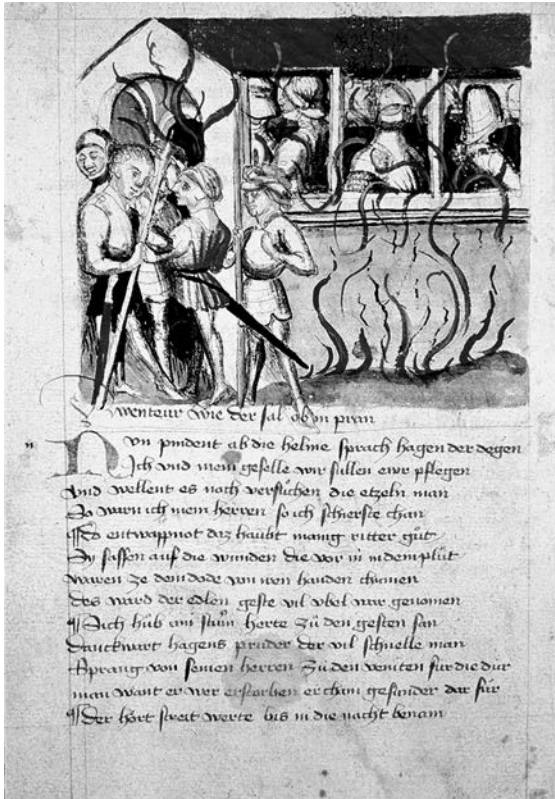 Awenteur wie der sal ob in pran
Nun pindent ab die helme sprach hagen der degen
Ich vnd mein geselle wir sullen ewr pflegen
Und wellent es noch versuchen die etzeln man
So warn ich mein herren so ich schierste chan
Do entwappnot daz haubt manig ritter gůt
Sy sassen auf die wunden die vor in in dem plůt
waren ze dem dode von iren handen chomen
des ward der edlen geste vil vbel war genomen
Sich hůb ain herte zů den gesten san
danckwart hagens průder der vil schnelle man
Sprang von seinen herren zů den veinten fur die dur
man want er wer erstorben er cham gesunder dar fur
Der hort streit werte bis in die nacht benam